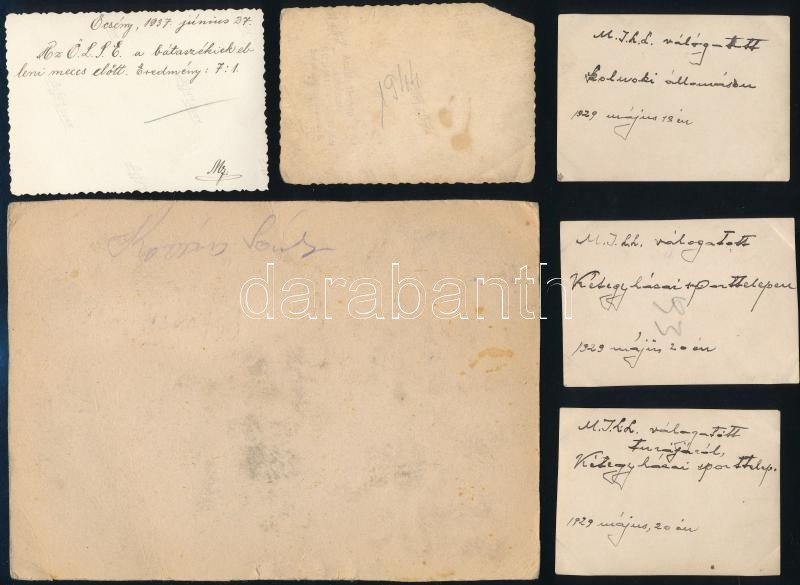 Őcsény, 1937. június 27.
Az Ő.L.S.E. a bátaszékiek el-
leni meccs előtt. Eredmény: 7:1.
1944
M.T.L.L. válogatott
Szolnoki állomáson
1929 május 18 án
M.T.L.L. válogatott
Kétegyházai sporttelepen
93
1929 május 20 án
M.T.L.L. válogatott
turájáról,
Kétegyházai sporttelep.
1929 május, 20 án
darabanth